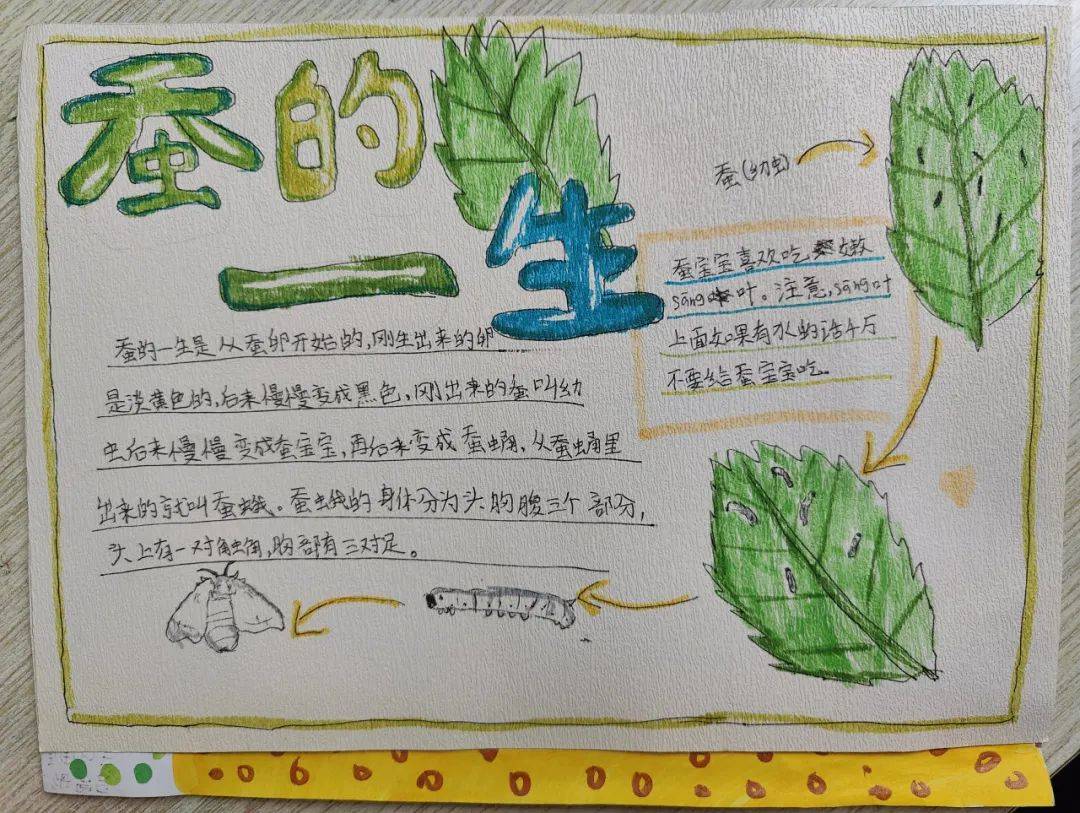 蚕的
一生
蚕的一生是从蚕卵开始的,刚生出来的卵
是淡黄色的,后来慢慢变成黑色,刚出来的蚕叫幼
虫后来慢慢变成蚕宝宝,再后来变成蚕蛹,从蚕蛹里
出来的就叫蚕蛾。蚕蛾的身体分为头胸腹三个部分,
头上有一对触角,胸部有三对足。
蚕(幼虫)
蚕宝宝喜欢吃嫩
sāng叶。注意,sāng叶
上面如果有水的话千万
不要给蚕宝宝吃。